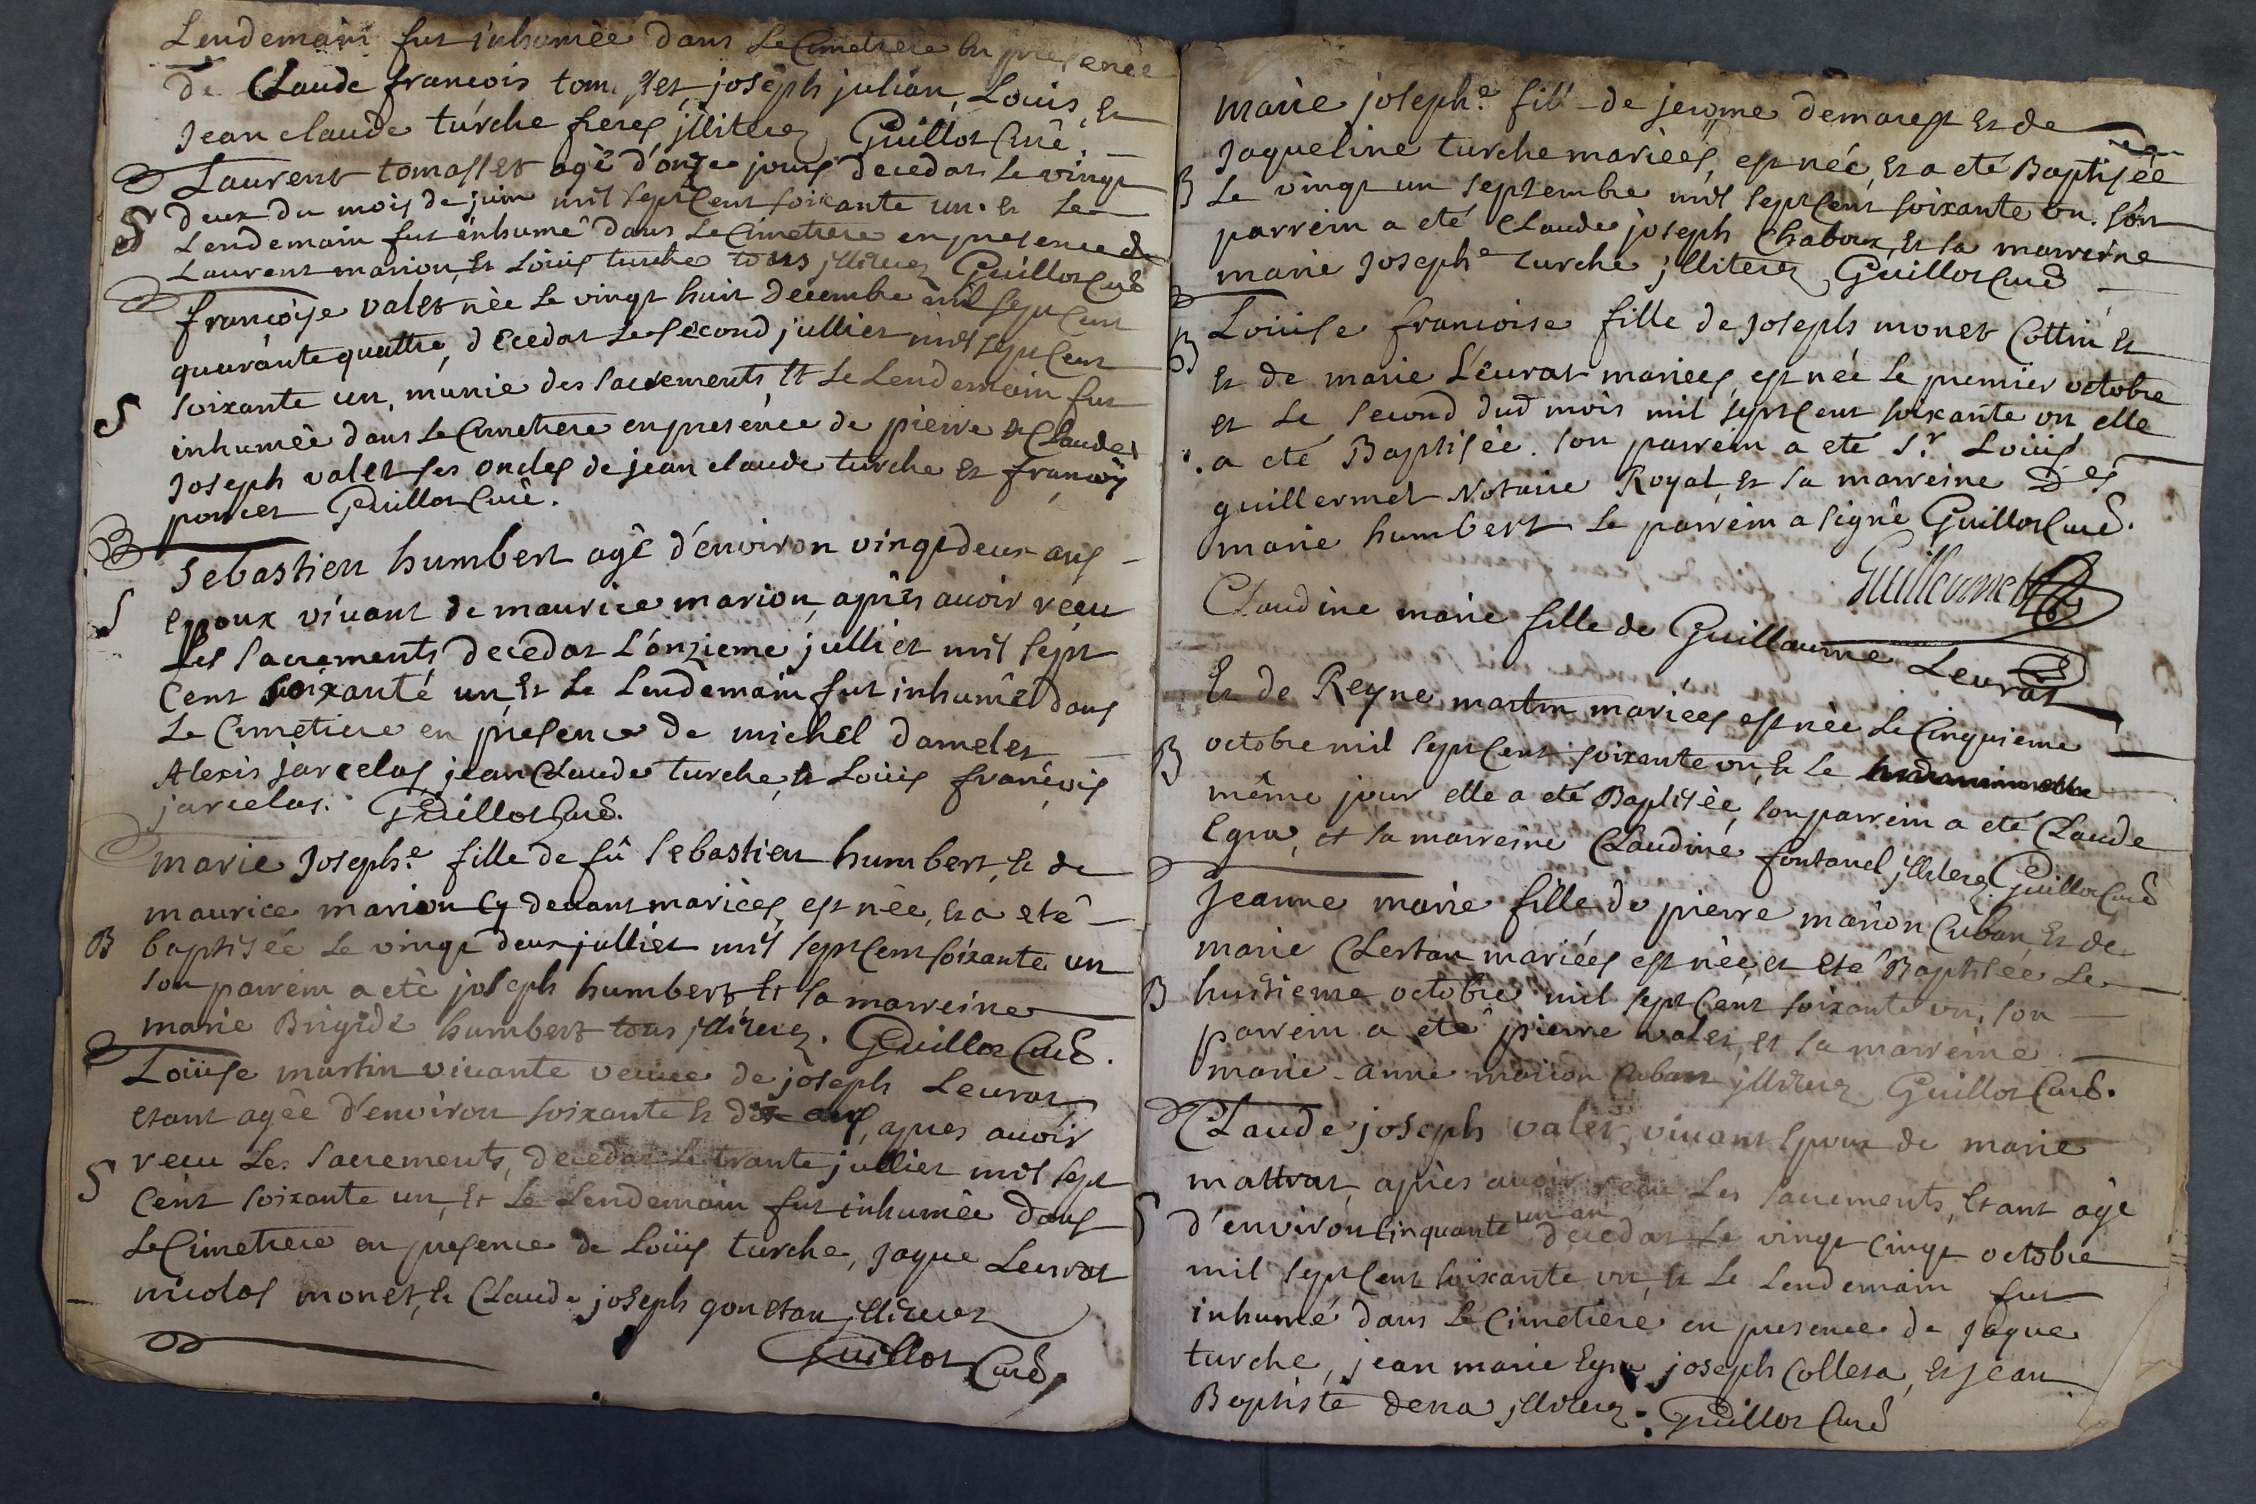 Lendemain fut inhumée dans Le Cimetiere en presence
de Claude francois tomasset, joseph julian, Louis, et
Jean claude turche freres jlliterez Guillot Curé.
Laurent tomasset agé d'onze jours decedat Le vingt
S deux du mois de juin mil sept Cent soixante un. et Le
Lendemain fut inhumé dans Le Cimetiere en presence de
Laurent marion, et Loüis turche tous jlliterez Guillot Curé
francoise valet née Le vingt huit decembre mil sept Cent
quarante quattre, decedat Le second jullier mil sept Cent
S soixante un, munie des sacrements et Le Lendemain fut
inhumée dans Le Cimetiere en presence de pierre et Claude
Joseph valet ses oncles de jean claude turche et francois
poncet Guillot Curé.
Sebastien humbert agé d'environ vingt deux ans
S epoux vivant de maurice marion, après avoir recu
Les sacrements decedat L'onzieme jullier mil sept
Cent soixante un, et Le Lendemain fut inhumé dans
Le Cimetiere en presence de michel damelet
Alexis jarcelat, jean Claude turche, et Loüis francois
jarcelat. Guillot Curé.
marie Josephe fille de fû Sebastien humbert, et de
maurice marion Cy devant mariées, est née, et a eté
B baptisée Le vingt deux jullier mil sept Cent soixante un
son parrein a eté joseph humbert et sa marreine
marie Brigide humbert tous jlliterez. Guillot Curé.
Loüise martin vivante veuve de joseph Leurat
etant agée d'environ soixante et dix ans, apres avoir
S recu Les sacrements, decedat Le trante jullier mil sept
Cent soixante un, et Le Lendemain fut inhumée dans
Le Cimetiere en presence de Loüis turche, Jaque Leurat
nicolas monet, et Claude joseph gonetan jlliterez
Guillot Curé,
marie josephe fille de jerome demarest et de
Jaqueline turche mariées, est née, et a eté Baptisée
B Le vingt un septembre mil sept Cent soixante un. son
parrein a eté Claude joseph Chaboux, et sa marreine
marie Josephe turche jlliterez Guillot Curé
Loüise francoise fille de joseph monet Cottin et
B et de marie Leurat mariées, est née Le premier octobre
et Le second dud mois mil sept Cent soixante un elle
a eté Baptisée. son parrein a eté Sr. Loüis
guillermet Notaire Royal, et sa marreine
marie humbert Le parrein a signé Guillot Curé.
Guillermet
Claudine marie fille de Guillaume Leurat
Et de Reyne martin mariées est née Le Cinquieme
B octobre mil sept Cent soixante un, et Le
même jour elle a eté Baptisée, son parrein a eté Claude
Egra, et sa marreine Claudine fontanel jlliterez Guillot Curé
Jeanne marie fille de pierre marion Cuban, et de
marie Clertan mariées est née et eté Baptisée Le
B huitieme octobre mil sept Cent soixante un, son
parrein a eté pierre valet, et sa marreine
marie-anne marion Cuban jlliterez Guillot Curé.
Claude joseph valet, vivant epoux de marie
mattrat, après avoir recu Les sacrements, etant agé
S d'environ Cinquante un an decedat Le vingt cinq octobre
mil sept Cent soixante un, et Le Lendemain fut
inhumé dans Le Cimetiere en presence de Jaque
turche, jean marie Egra, joseph Colleta, et jean
Baptiste dena jlliterez. Guillot Curé